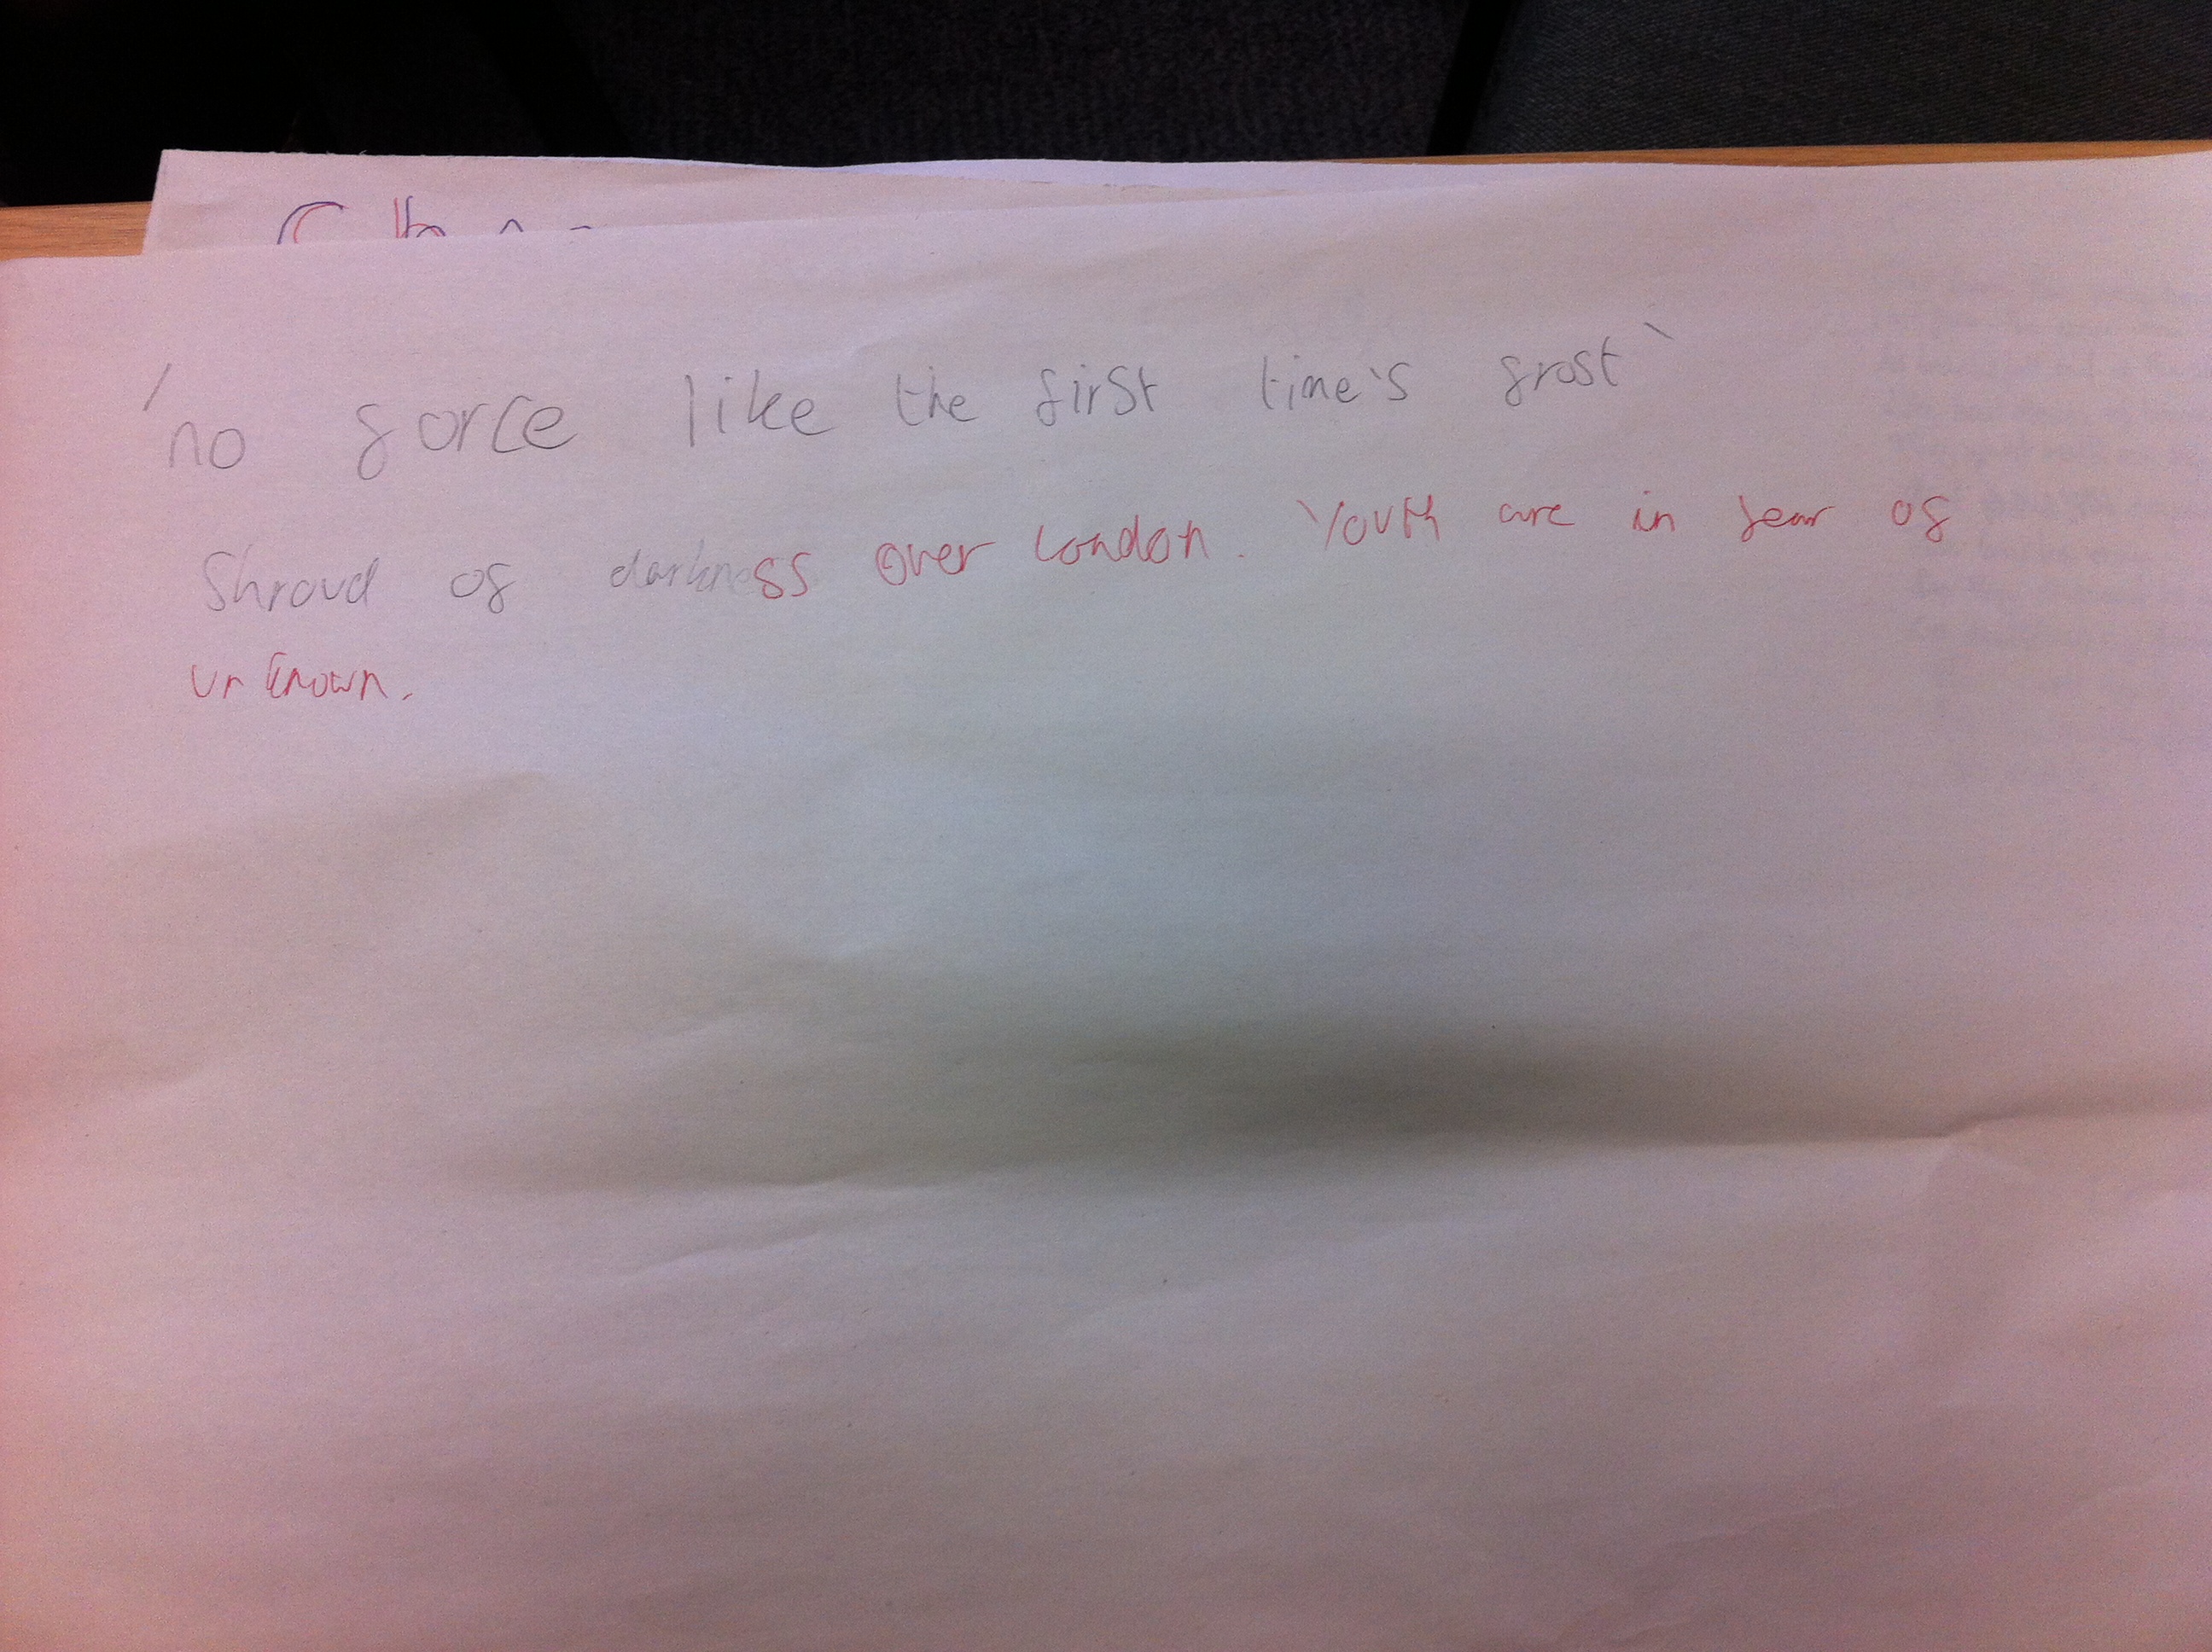 'no force like the first time's frost'
Shroud of darkness over London. Youth are in fear of
unknown.